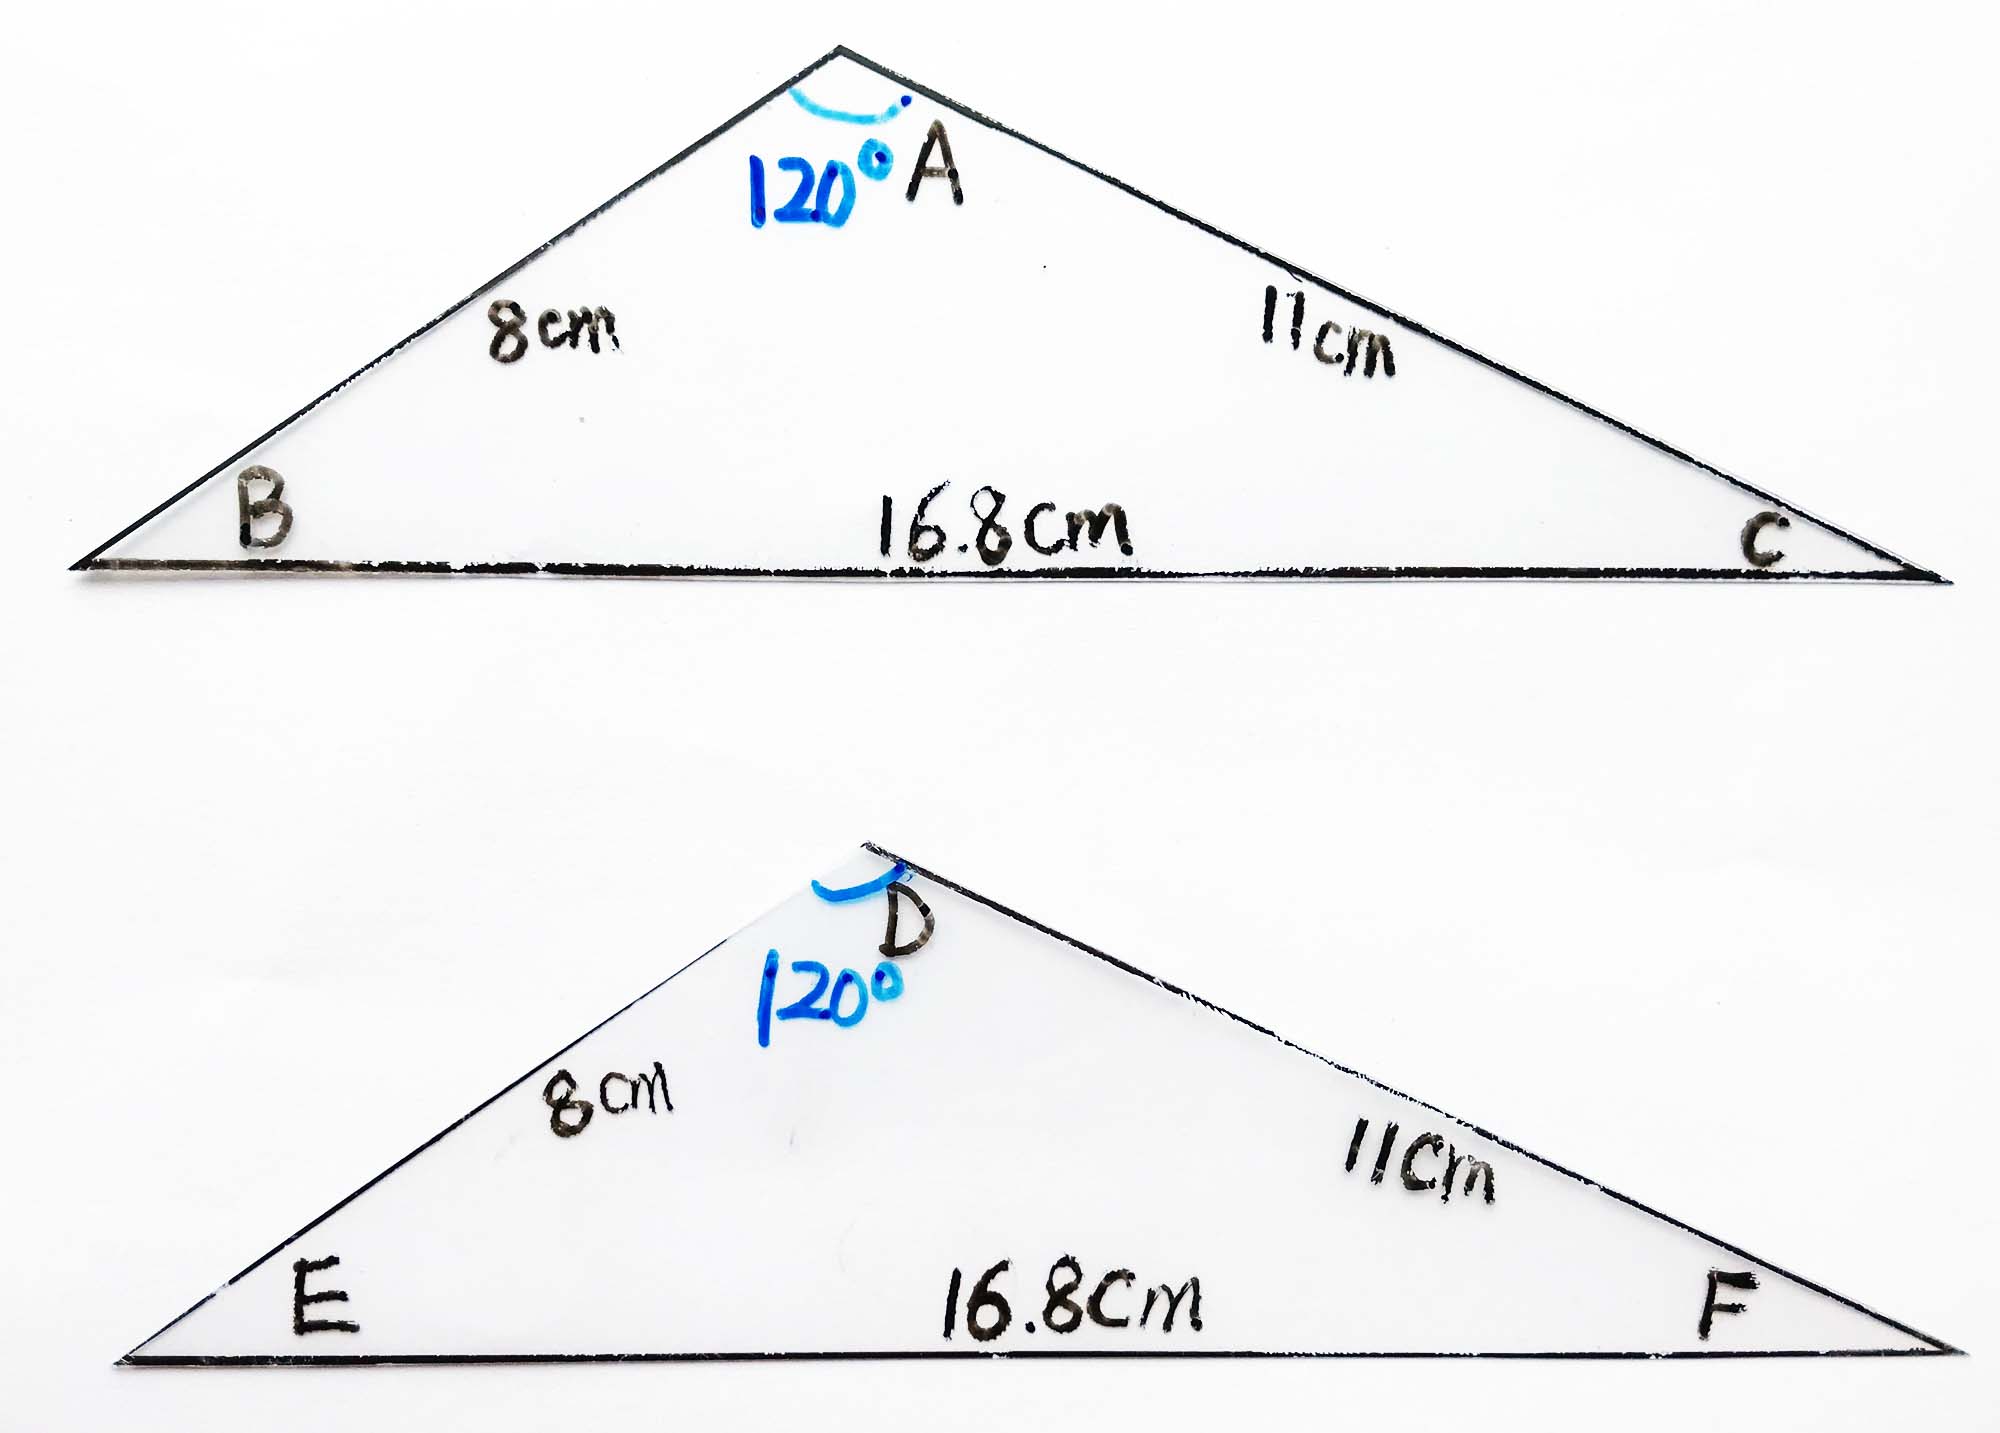 120° A
8cm
11cm
B
16.8cm
C
D
120°
8cm
11cm
E
16.8cm
F